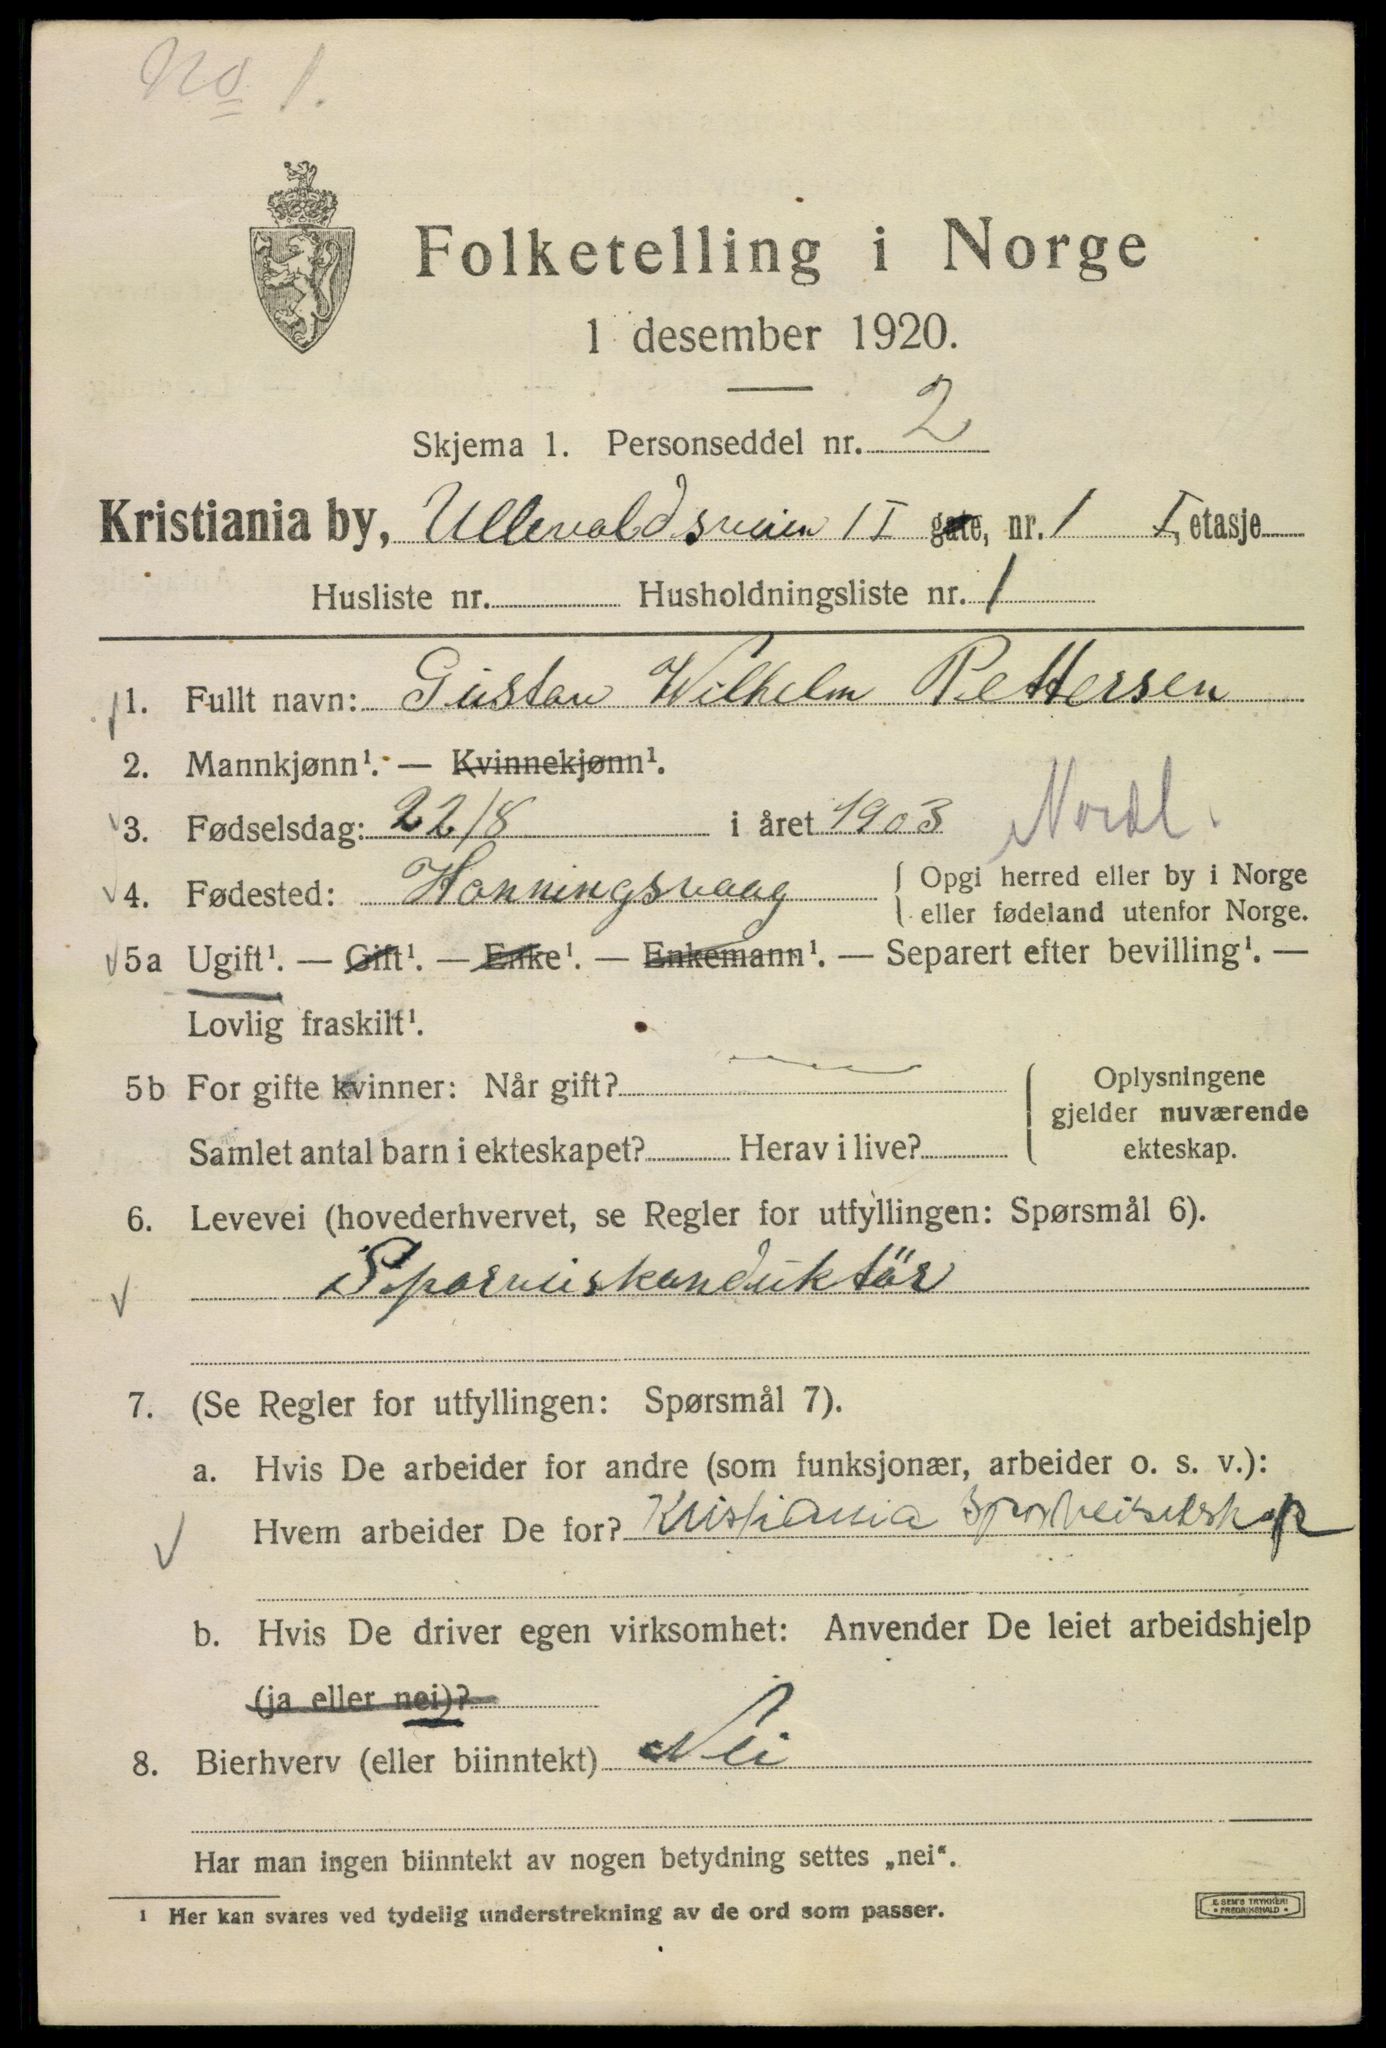 No 1.
Folketelling i Norge
1 desember 1920.
Skjema 1. Personseddel nr. 2
Kristiania by, Ullevoldsveien 1 I gate, nr. 1 I, etasje
Husliste nr. Husholdningsliste nr. 1
1. Fullt navn: Gustav Wilhelm Pettersen
2. Mannkjønn¹. — Kvinnekjønn¹.
3. Fødselsdag: 22/8 i året 1903 Nordl.
4. Fødested: Honningsvaag { Opgi herred eller by i Norge
eller fødeland utenfor Norge.
5a Ugift¹. — Gift¹. — Enke¹. — Enkemann¹. — Separert efter bevilling¹. —
Lovlig fraskilt¹.
5b For gifte kvinner: Når gift? { Oplysningene
gjelder nuværende
Samlet antal barn i ekteskapet? Herav i live? ekteskap.
6. Levevei (hovederhvervet, se Regler for utfyllingen: Spørsmål 6).
Sporveiskonduktör
7. (Se Regler for utfyllingen: Spørsmål 7).
a. Hvis De arbeider for andre (som funksjonær, arbeider o. s. v.):
Hvem arbeider De for? Kristiania Sporveiselskap
b. Hvis De driver egen virksomhet: Anvender De leiet arbeidshjelp
(ja eller nei)?
8. Bierhverv (eller biinntekt) Nei
Har man ingen biinntekt av nogen betydning settes „nei“.
¹ Her kan svares ved tydelig understrekning av de ord som passer.
E. SEM'S TRYKKERI
• FREDRIKSHALD •